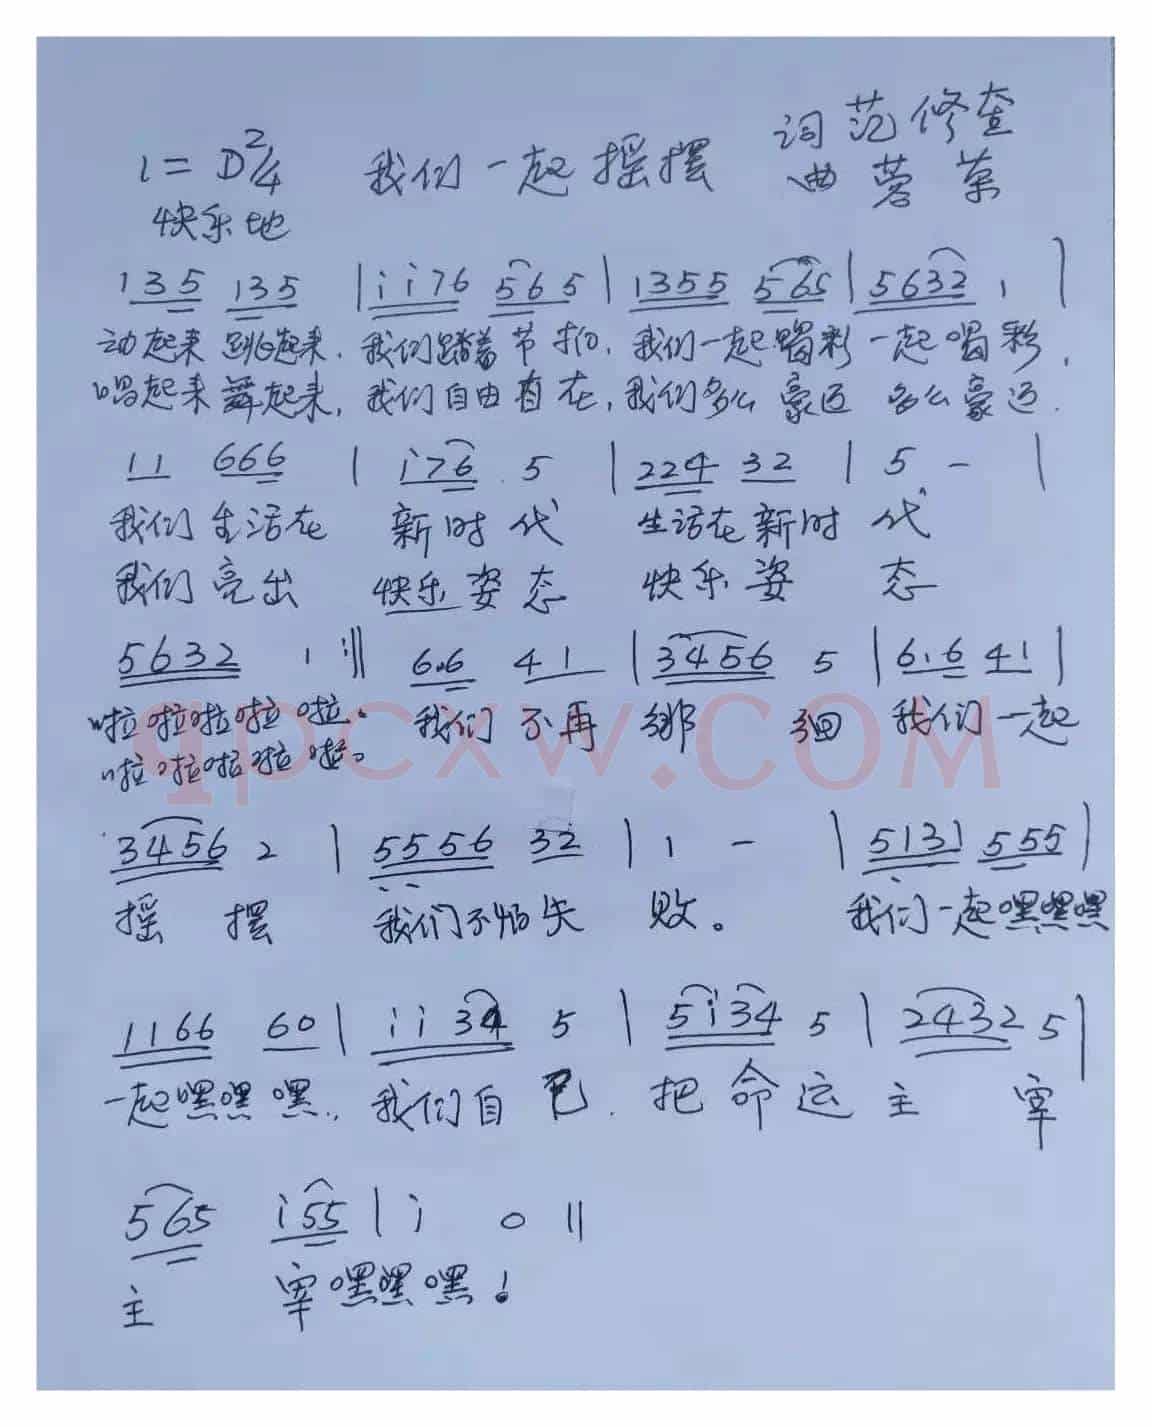 1=D 2/4 我们一起摇摆 词 范修奎
快乐地 曲 蓉荣
135 135 | i i76 565 | 1355 565 | 5632 1 |
动起来 跳起来, 我们踏着节拍, 我们一起喝彩 一起喝彩,
唱起来 舞起来, 我们自由自在, 我们多么豪迈 多么豪迈.
11 666 | i76 5 | 224 32 | 5 - |
我们生活在 新时代 生活在新时代
我们亮出 快乐姿态 快乐姿态
5632 1 :‖ 6.6 41 | 3456 5 | 6.6 41 |
啦啦啦啦啦。 我们不再 徘徊 我们一起
啦啦啦啦啦。
3456 2 | 5556 32 | 1 - | 5131 555 |
摇摆 我们不怕失败。 我们一起嘿嘿嘿
1166 60 | i i34 5 | 5i34 5 | 2432 5 |
一起嘿嘿嘿, 我们自己. 把命运主宰
565 i55 | i 0 ‖
主 宰嘿嘿嘿!
qpcxw.com